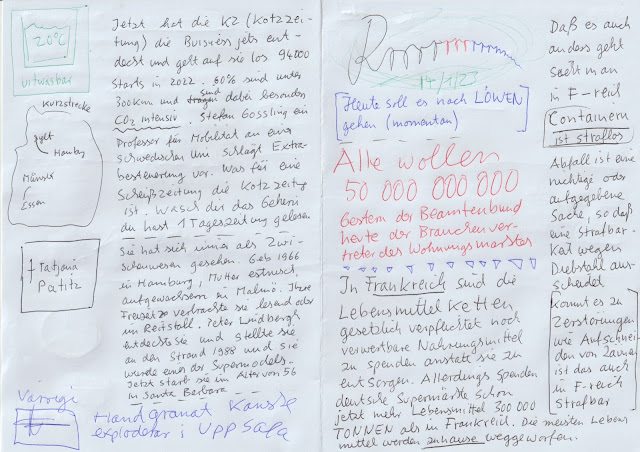 20°C
unwaschbar
Kurzstrecke
Sylt
Hamburg
Münster
Essen
† Tatjana
Patitz
Värsigi
Jetzt hat die KZ (Kotzzei-
tung) die Buisnessjets ent-
deckt und geht auf sie los 94000
Starts in 2022. 60% sind unter
300Km und tragen sind dabei besonders
CO2 intensiv. Stefan Gossling ein
Professor für Mobilität an einer
schwedischen Uni schlägt Extra-
besteuerung vor. Was für eine
Scheißzeitung die Kotzzeitg
ist. Wasch dir das Gehirn
du hast 1 Tageszeitung gelesen
Sie hat sich immer als Zwi-
schenwesen gesehen. Geb 1966
in Hamburg, Mutter estnisch,
aufgewachsen in Malmö. Ihre
Freizeit verbrachte sie lesend oder
im Reitstall. Peter Lindbergh
entdeckte sie und stellte sie
an den Strand 1988 und sie
wurde eine der Supermodels.
Jetzt starb sie im Alter von 56
in Santa Barbara
Handgranat Kanske
exploderar i Uppsala
Rrrrrrrrrrrrr
14/1/23
Heute soll es nach LÖWEN
gehen (momentan)
Alle wollen
50 000 000 000
Gestern der Beamtenbund
heute der Branchenver-
treter des Wohnungsmarktes
In Frankreich sind die
Lebensmittel Ketten
gesetzlich verpflichtet noch
verwertbare Nahrungsmittel
zu spenden anstatt sie zu
entsorgen. Allerdings spenden
deutsche Supermärkte schon
jetzt mehr Lebensmittel 300 000
TONNEN als in Frankreich. Die meisten Lebens
mittel werden zuhause weggeworfen.
Daß es auch
anders geht
sieht man
in F-reich
Containern
ist straflos
Abfall ist eine
nichtige oder
aufgegebene
Sache, so daß
eine Strafbar-
Kait wegen
Diebstahl aus-
scheidet
Kommt es zu
Zerstörungen
wie Aufschnei-
den von Zäunen
ist das auch
in F-reich
strafbar